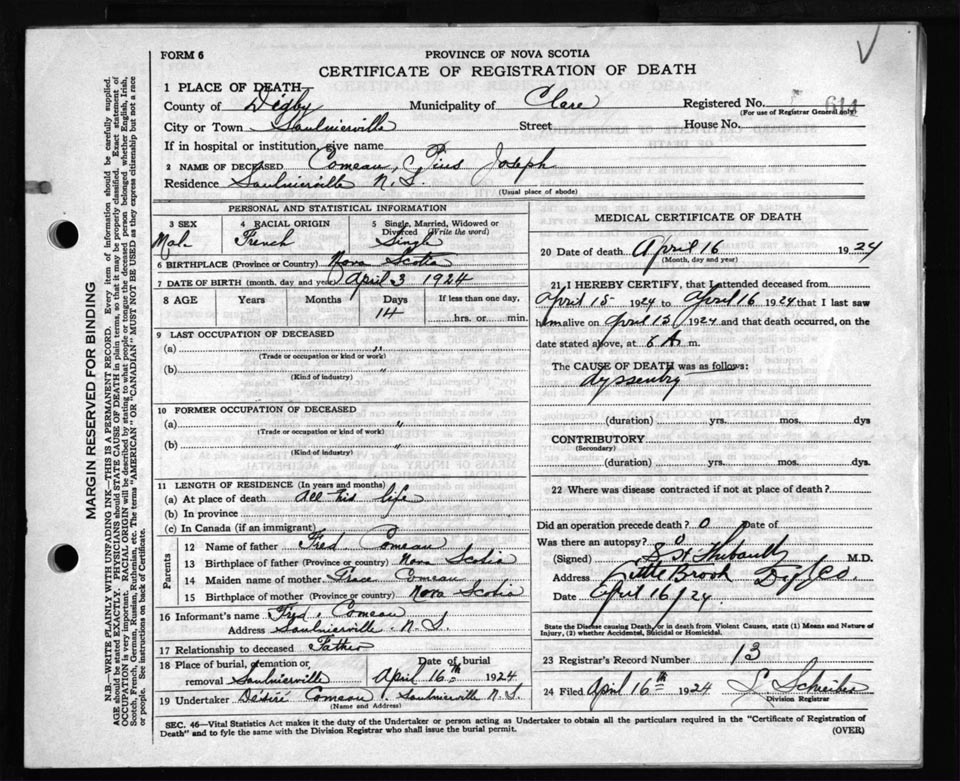 FORM 6
PROVINCE OF NOVA SCOTIA
CERTIFICATE OF REGISTRATION OF DEATH
1 PLACE OF DEATH
County of Digby Municipality of Clare Registered No. 644
(For use of Registrar General only)
City or Town Saulnierville Street House No.
If in hospital or institution, give name
2 NAME OF DECEASED Comeau, Pius Joseph
Residence Saulnierville N.S.
(Usual place of abode)
PERSONAL AND STATISTICAL INFORMATION
3 SEX 4 RACIAL ORIGIN 5 Single, Married, Widowed or Divorced (Write the word)
Male French Single
6 BIRTHPLACE (Province or Country) Nova Scotia
7 DATE OF BIRTH (month, day and year) April 3 1924
8 AGE Years Months Days If less than one day.
14 hrs. or min.
9 LAST OCCUPATION OF DECEASED
(a) "
(Trade or occupation or kind or work)
(b) "
(Kind of industry)
10 FORMER OCCUPATION OF DECEASED
(a) "
(Trade or occupation or kind or work)
(b) "
(Kind of industry)
11 LENGTH OF RESIDENCE (In years and months)
(a) At place of death All his life
(b) In province
(c) In Canada (if an immigrant)
Parents
12 Name of father Fred. Comeau
13 Birthplace of father (Province or country) Nova Scotia
14 Maiden name of mother Grace Comeau
15 Birthplace of mother (Province or country) Nova Scotia
16 Informant's name Fred. Comeau
Address Saulnierville N.S.
17 Relationship to deceased Father
18 Place of burial, cremation or removal Saulnierville
Date of burial April 16th 1924
19 Undertaker Désiré Comeau, Saulnierville N.S.
(Name and Address)
MEDICAL CERTIFICATE OF DEATH
20 Date of death April 16 1924
(Month, day and year)
21 I HEREBY CERTIFY, that I attended deceased from
April 15 1924 to April 16 1924 that I last saw
him alive on April 15 1924 and that death occurred, on
date stated above, at 6 A m.
The CAUSE OF DEATH was as follows:
Dyssentry
(duration) yrs. mos. dys
CONTRIBUTORY
(Secondary)
(duration) yrs. mos. dys.
22 Where was disease contracted if not at place of death?
Did an operation precede death? 0 Date of
Was there an autopsy? 0
(Signed) Thibault M.D.
Address Little Brook Digby Co
Date April 16/24.
State the Disease causing Death, or in death from Violent Causes, state (1) Means and Nature of
Injury, (2) whether Accidental, Suicidal or Homicidal.
23 Registrar's Record Number 13
24 Filed April 16th 1924
Division Registrar
SEC. 46—Vital Statistics Act makes it the duty of the Undertaker or person acting as Undertaker to obtain all the particulars required in the "Certificate of Registration of
Death" and to fyle the same with the Division Registrar who shall issue the burial permit.
(OVER)
MARGIN RESERVED FOR BINDING
N.B.—WRITE PLAINLY WITH UNFADING INK—THIS IS A PERMANENT RECORD. Every item of information should be carefully supplied.
AGE should be stated EXACTLY. PHYSICIANS should STATE CAUSE OF DEATH in plain terms, so that it may be properly classified. Exact statement of
OCCUPATION is very important. RACIAL ORIGIN will be described by stating to what people or tongue the deceased person belonged whether English, Irish,
Scotch, French, German, Russian, Ruthenian, etc. The terms "AMERICAN" OR "CANADIAN" MUST NOT BE USED as they express citizenship but not a race
or people. See instructions on back of Certificate.